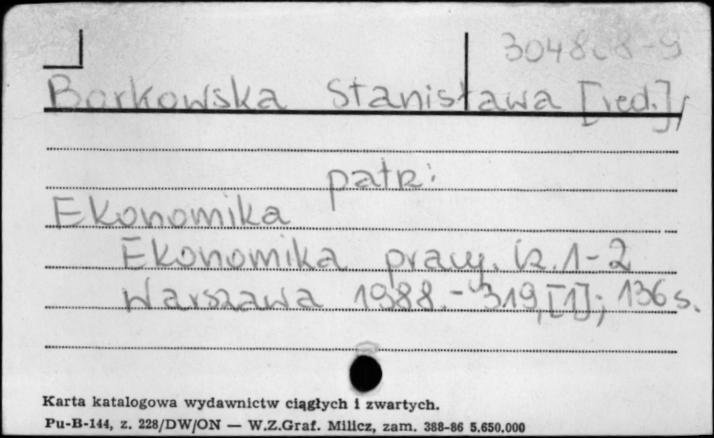 30482,8-9
Borkowska Stanisława [red.]/
patrz:
Ekonomika
Ekonomika pracy. Cz. 1-2
Warszawa 1988.-319,[1]; 136 s.
Karta katalogowa wydawnictw ciągłych i zwartych.
Pu-B-144, z. 228/DW/ON — W.Z.Graf. Milicz, zam. 388-86 5.650.000